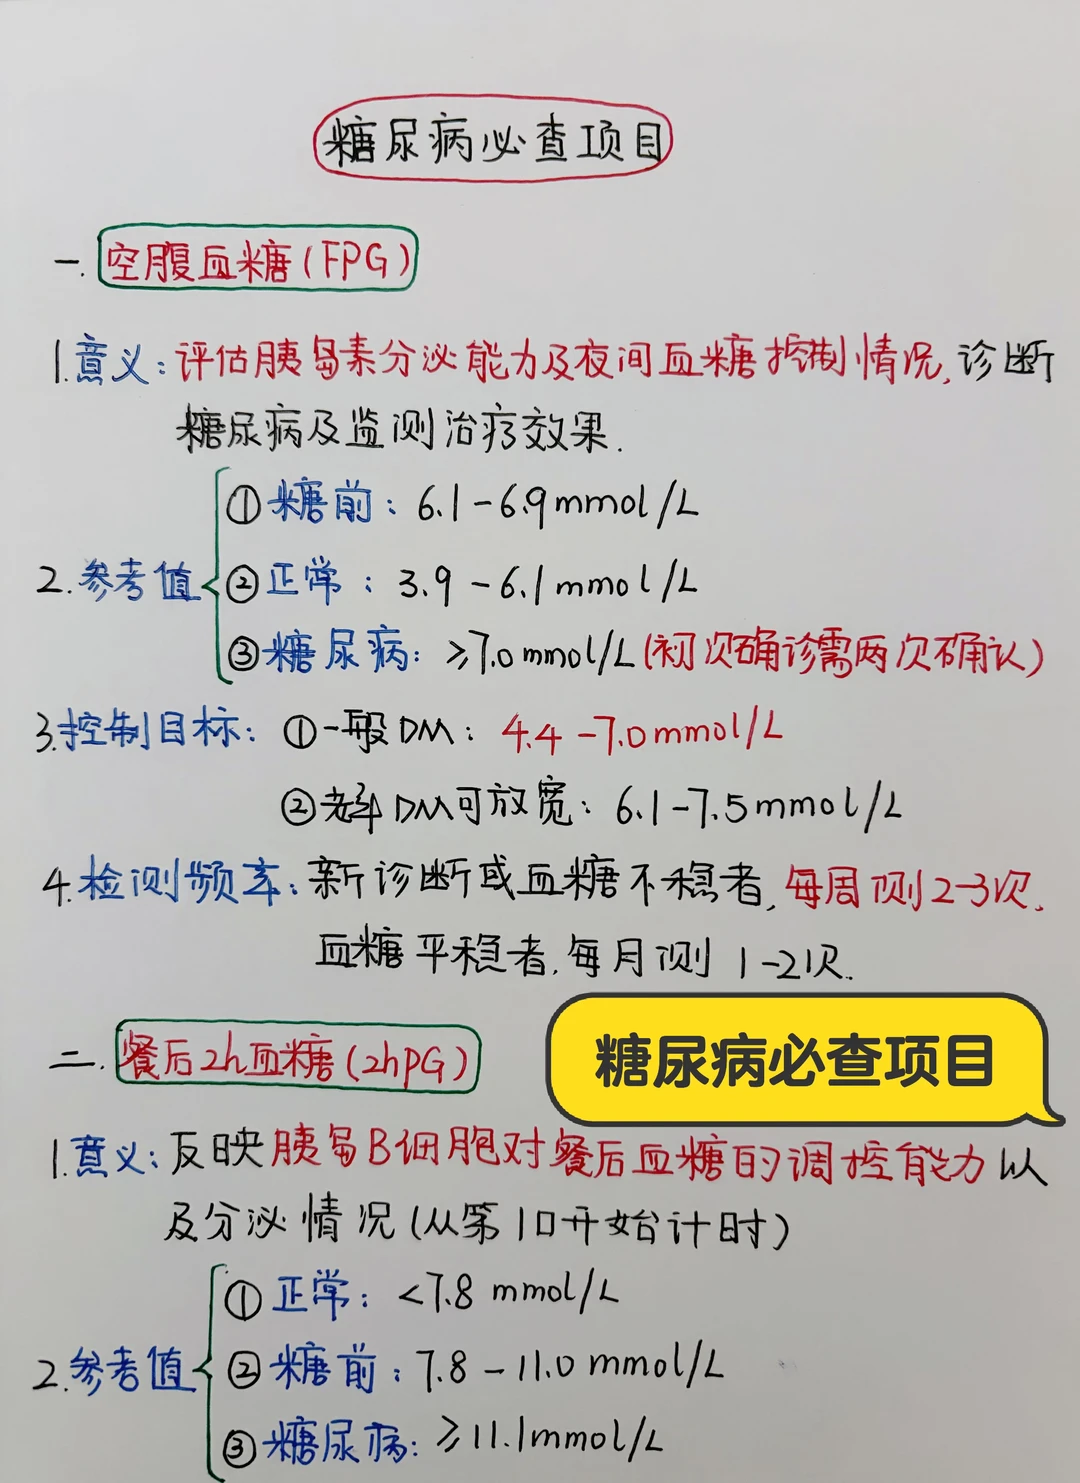 糖尿病必查项目
一. 空腹血糖(FPG)
1.意义:评估胰岛素分泌能力及夜间血糖控制情况,诊断
糖尿病及监测治疗效果.
①糖前:6.1-6.9mmol/L
2.参考值 ②正常:3.9-6.1mmol/L
③糖尿病:≥7.0mmol/L(初次确诊需两次确认)
3.控制目标:①一般DM:4.4-7.0mmol/L
②老年DM可放宽:6.1-7.5mmol/L
4.检测频率:新诊断或血糖不稳者,每周测2-3次,
血糖平稳者,每月测1-2次.
二. 餐后2h血糖(2hPG)
糖尿病必查项目
1.意义:反映胰岛B细胞对餐后血糖的调控能力以
及分泌情况(从第1口开始计时)
①正常:<7.8 mmol/L
2.参考值 ②糖前:7.8-11.0mmol/L
③糖尿病:≥11.1mmol/L